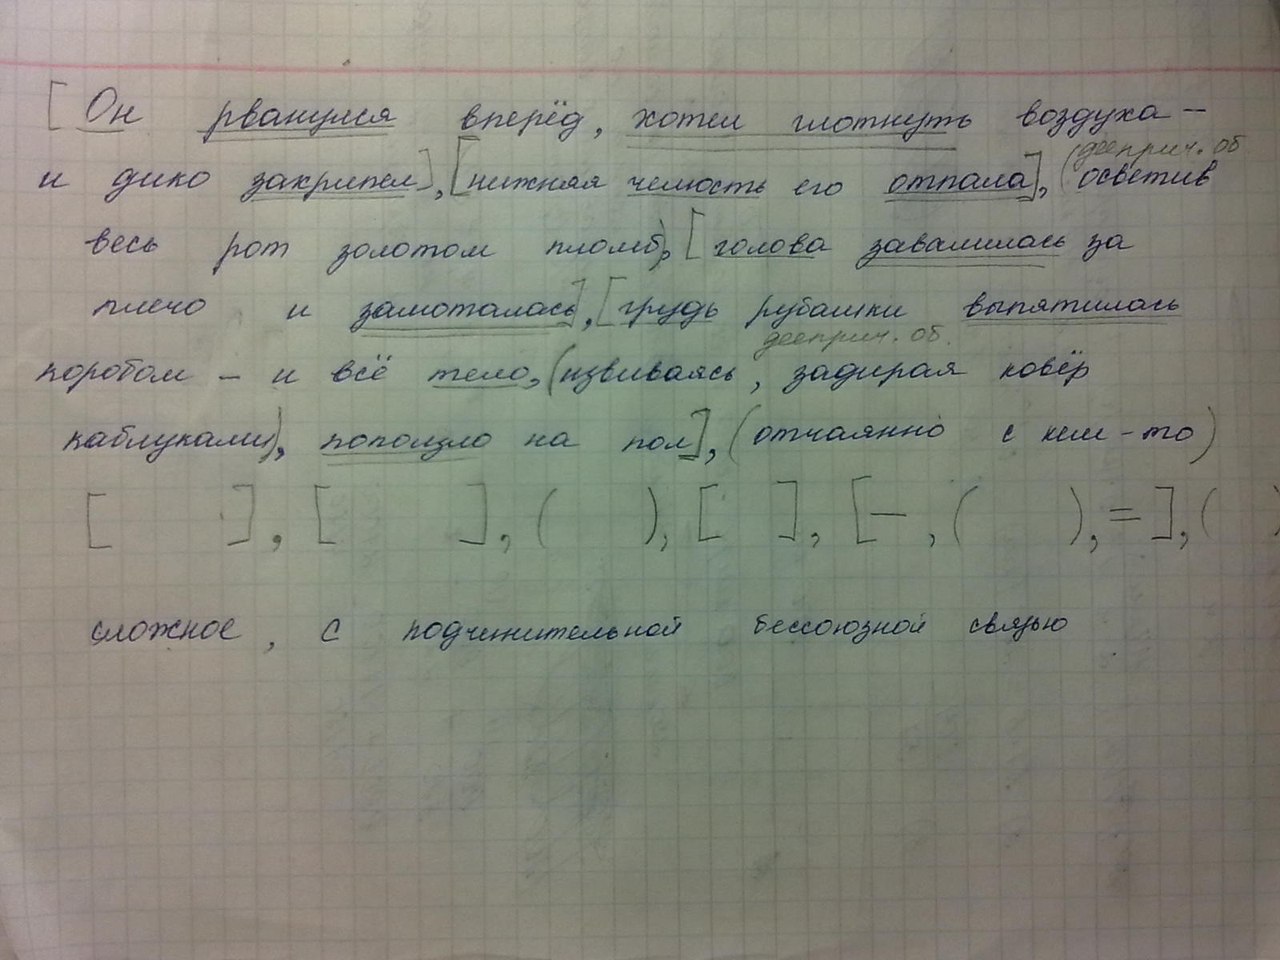 [ Он рванулся вперёд, хотел глотнуть воздуха –
дееприч. об
и дико захрипел], [нижняя челюсть его отпала], (осветив
весь рот золотом пломб), [голова завалилась за
плечо и замоталась], [грудь рубашки выпятилась
дееприч. об.
коробом – и всё тело, (извиваясь, задирая ковёр
каблуками), поползло на пол], (отчаянно с кем-то)
[ ], [ ], ( ), [ ], [–, ( ), = ], ( )
сложное, с подчинительной бессоюзной связью